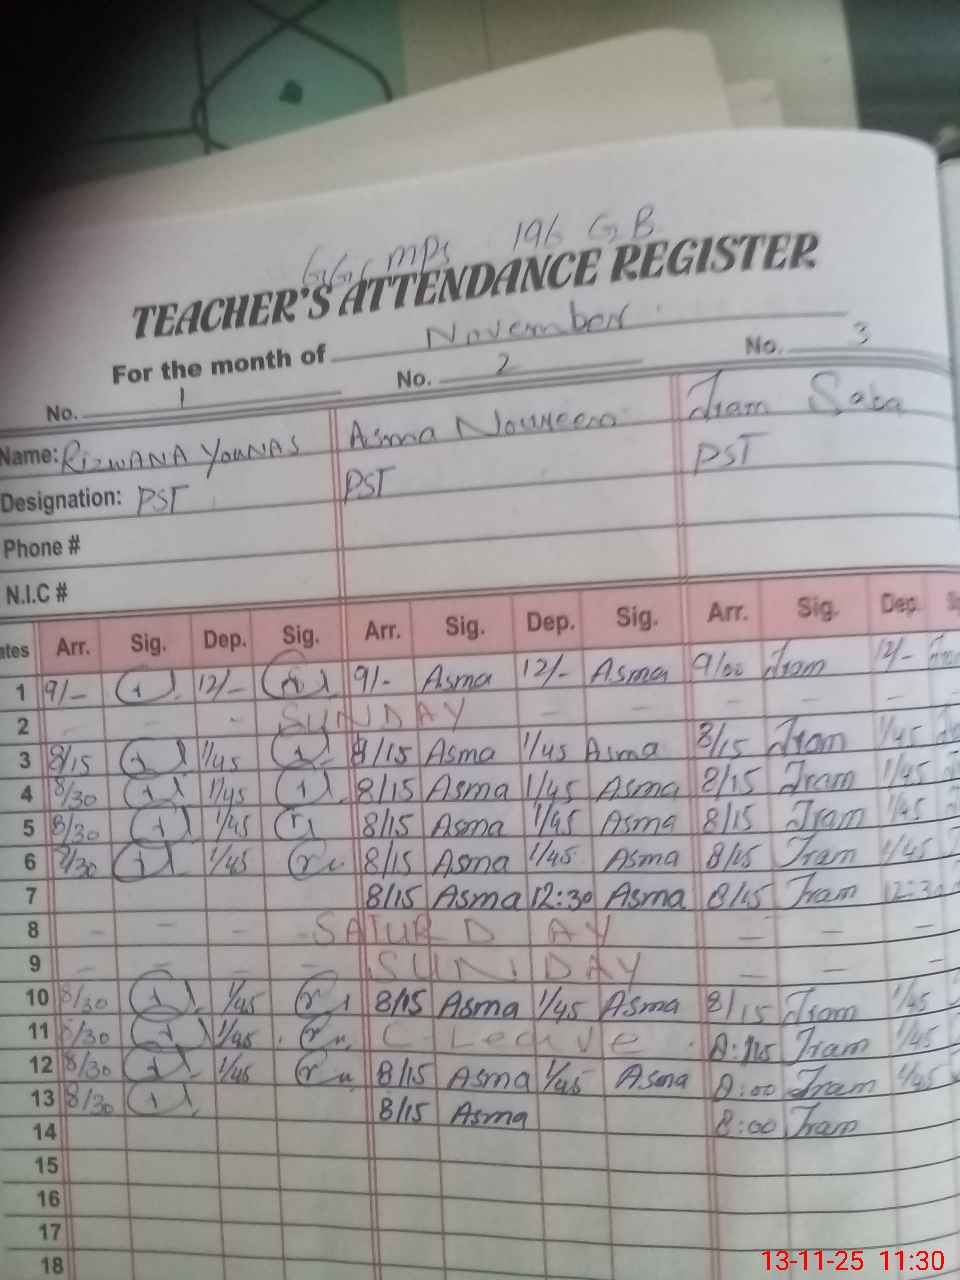 GGCMPS 196 GB
TEACHER'S ATTENDANCE REGISTER
For the month of November
No. 1 No. 2 No. 3
Name: RIZWANA YOUNAS Asma Noureen Iram Saba
Designation: PST PST PST
Phone #
N.I.C #
ates Arr. Sig. Dep. Sig. Arr. Sig. Dep. Sig. Arr. Sig. Dep.
1 9/- 12/- 9/- Asma 12/- Asma 9/00 Iram 12/-
2 - - - SUNDAY - - - - -
3 8/15 1/45 8/15 Asma 1/45 Asma 8/15 Iram 1/45
4 8/30 1/45 8/15 Asma 1/45 Asma 8/15 Iram 1/45
5 8/30 1/45 8/15 Asma 1/45 Asma 8/15 Iram 1/45
6 8/30 1/45 8/15 Asma 1/45 Asma 8/15 Iram 1/45
7 8/15 Asma 12:30 Asma 8/15 Iram 12:30
8 - - - - SATURDAY - - -
9 - - - - SUNDAY - - -
10 8/30 1/45 8/15 Asma 1/45 Asma 8/15 Iram 1/45
11 8/30 1/45 C-Leave Iram 1/45
12 8/30 1/45 8/15 Asma 1/45 Asma 8:00 Iram 1/45
13 8/30 8/15 Asma 8:00 Iram
14
15
16
17
18
13-11-25 11:30